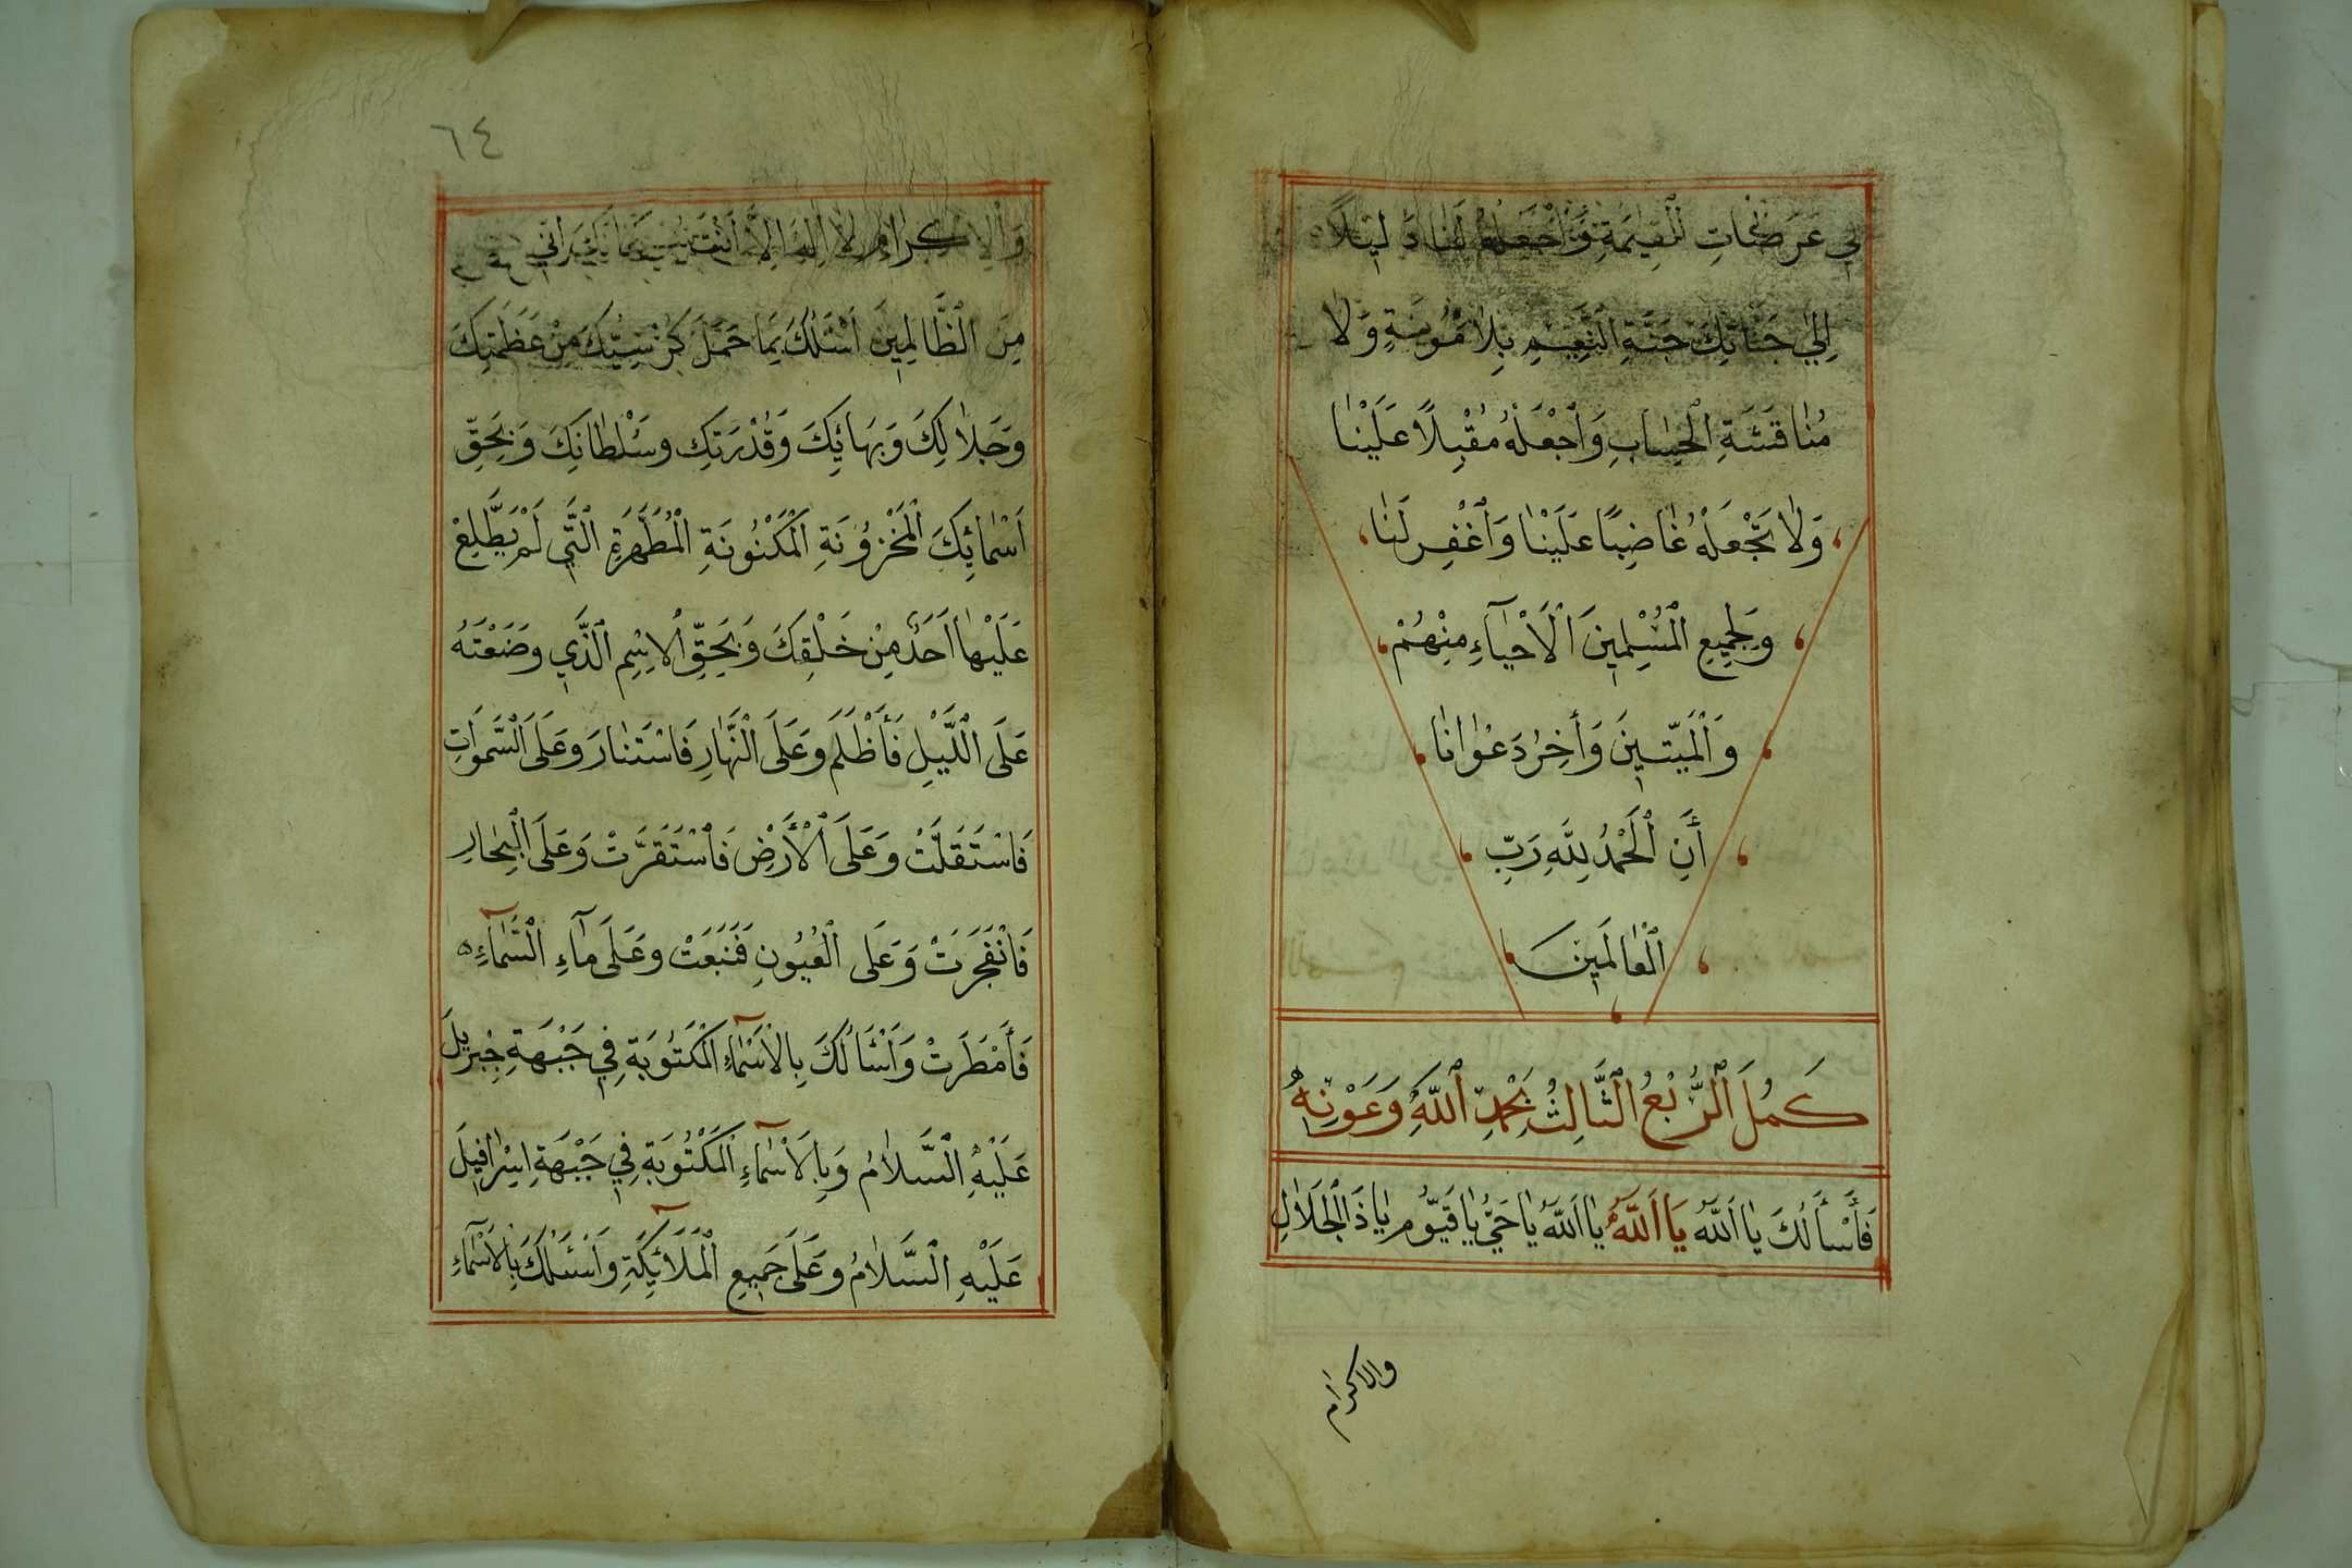 فِي عَرَصَاتِ الْقِيٰمَةِ وَٱجْعَلْهُ لَنَا دَلِيلًا
إِلٰي جَنَّاتِكَ جَنَّةِ النَّعِيمِ بِلَا مَؤُنَةٍ وَلَا
مُنَاقَشَةِ ٱلْحِسَابِ وَٱجْعَلْهُ مُقْبِلًا عَلَيْنَا
وَلَا تَجْعَلْهُ غَاضِبًا عَلَيْنَا وَٱغْفِرْ لَنَا
وَلِجَمِيعِ الْمُسْلِمِينَ ٱلْأَحْيَآءِ مِنْهُمْ
وَٱلْمَيِّتِينَ وَأَخِرُ دَعْوَانَا
أَنِ ٱلْحَمْدُ لِلَّهِ رَبِّ
الْعَالَمِينَ
كَمُلَ ٱلرُّبْعُ الثَّالِثُ بِحَمْدِ ٱللَّهِ وَعَوْنِهِ
فَأَسْأَلُكَ يَا اَللَّهُ يَا اَللَّهُ يَا اَللَّهُ يَا حَيُّ يَا قَيُّومُ يَا ذَا ٱلْجَلَالِ
والاكرام
٦٤
وَالْاِكْرَامِ لَا اِلٰهَ اِلَّا اَنْتَ سُبْحَانَكَ اِنِّي
مِنَ الظَّالِمِينَ اَسْئَلُكَ بِمَا حَمَلَ كُرْسِيُّكَ مِنْ عَظَمَتِكَ
وَجَلَالِكَ وَبَهَائِكَ وَقُدْرَتِكَ وسُلْطَانِكَ وَبِحَقِّ
اَسْمَائِكَ ٱلْمَخْزُونَةِ الْمَكْنُونَةِ الْمُطَهَّرَةِ الَّتِي لَمْ يَطَّلِعْ
عَلَيْهَا اَحَدٌ مِنْ خَلْقِكَ وَبِحَقِّ ٱلْاِسْمِ الَّذِي وَضَعْتَهُ
عَلَى اللَّيْلِ فَأَظْلَمَ وعَلَى النَّهَارِ فَاسْتَنَارَ وعَلَى السَّمٰوَاتِ
فَاسْتَقَلَّتْ وعَلَى ٱلْأَرْضِ فَاسْتَقَرَّتْ وَعَلَى الْبِحَارِ
فَانْفَجَرَتْ وَعَلَى ٱلْعُيُونِ فَنَبَعَتْ وعَلَى مآءِ السَّمَآءِ
فَأَمْطَرَتْ وَاَسْأَلُكَ بِالْاَسْمَآءِ الْمَكْتُوبَةِ فِي جَبْهَةِ جِبْرِيلَ
عَلَيْهِ السَّلَامُ وَبِالْاَسْمَآءِ الْمَكْتُوبَةِ فِي جَبْهَةِ اِسْرَافِيلَ
عَلَيْهِ السَّلَامُ وعَلَى جَمِيعِ الْمَلَآئِكَةِ وَاَسْئَلُكَ بِالْاَسْمَآءِ